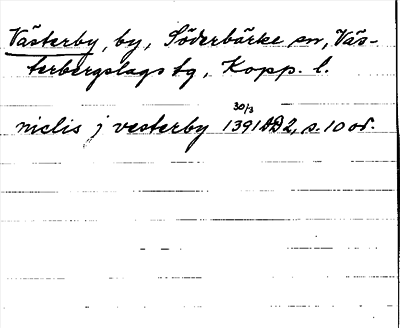 Västerby, by, Söderbärke sn, Väs-
terbergslags tg, Kopp. l.
30/3
nielis j vesterby 1391 AB2, s. 10 or.